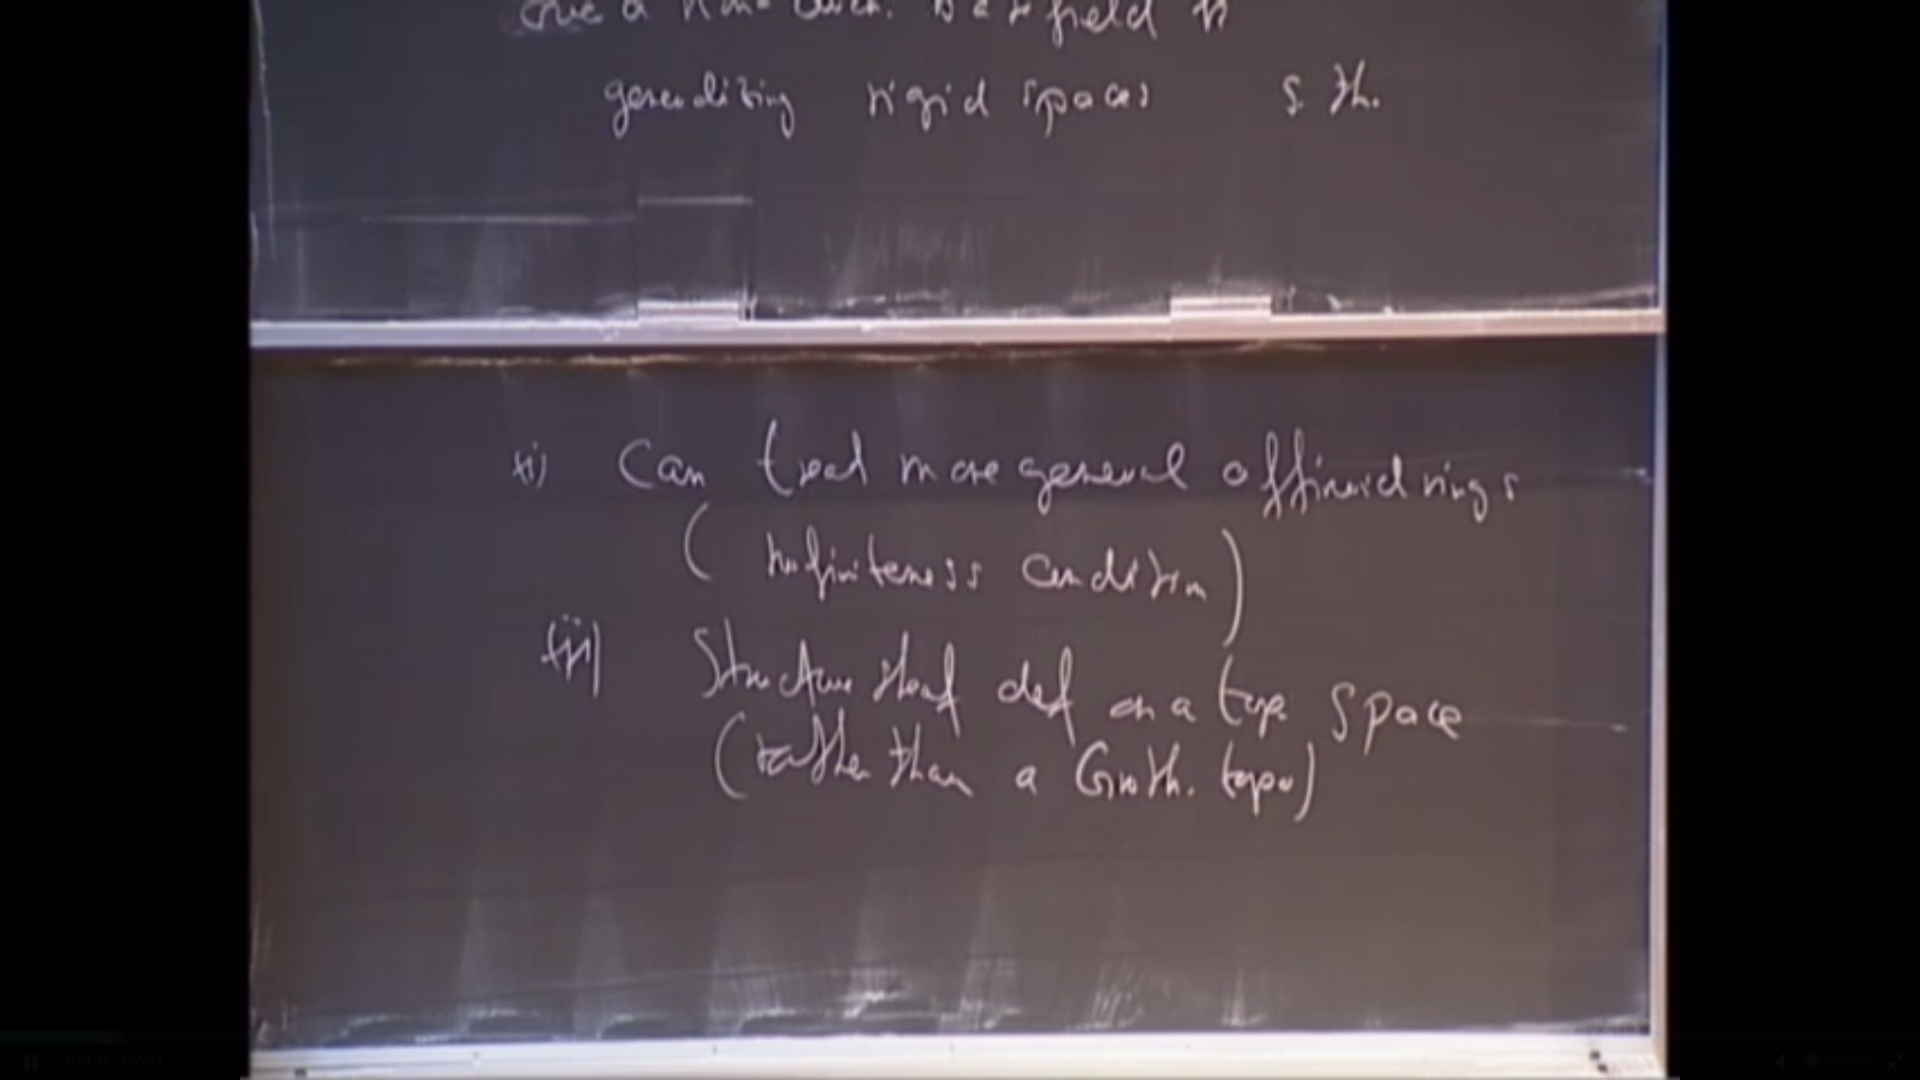 over a non-arch. base field K
generalizing rigid spaces s. th.
i) Can treat more general affinoid rings
(no finiteness condition)
ii) Structure sheaf def on a top. space
(rather than a Groth. topo)